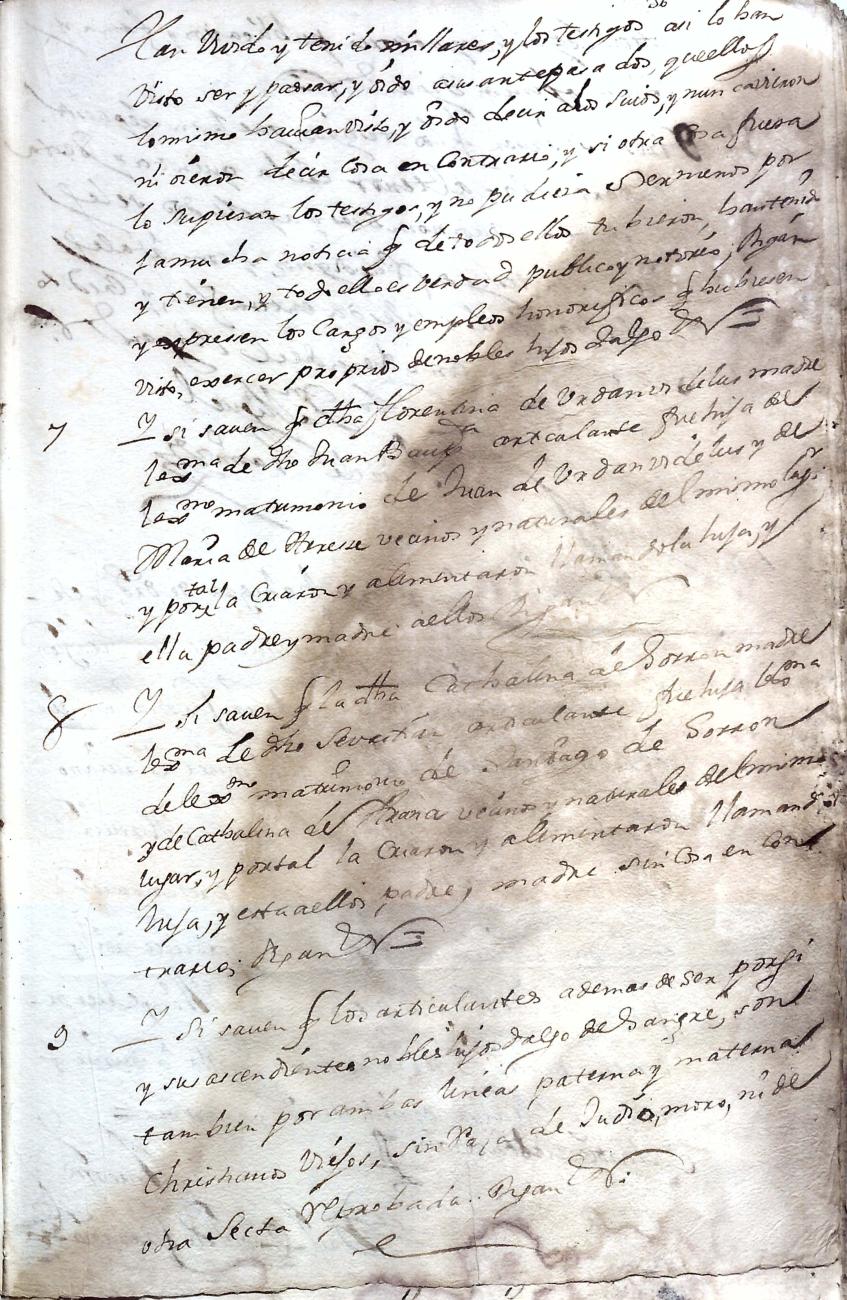 han havido y tenido similares, y los testigos asi lo han
visto ser y passar, y oido a sus antepasados, que ellos
lo mismo havian visto, y oido decir a los suios, y nunca vieron
ni oieron decir cosa en contrario, y si otra cosa fuera
lo supieran los testigos, y no pudiera ser menos por
la mucha noticia q de todos ellos tubieron, han tenido
y tienen, y todo ello es verdad publico y notorio; Digan
y expresen los Cargos y empleos honorificos q hubiesen
visto, exercer proprios de nobles hijos dalgo
7 Y si saven q dha Florentina de Urdanivi de lus madre
lexma de dho Juan Baupta articulante fue hija de
lexmo matrimonio de Juan de Urdanivi de lus y de
Maria de Arrese vecinos y naturales del mismo lugr
y por tal la Criaron y alimentaron llamandola hija, y
ella padre y madre a ellos Digan
8 Y si saven q la dha Cathalina de Sorron madre
lexma de dho Sevastian articulante fue hija lexma
de lexmo matrimonio de Santiago de Sorron
y de Cathalina de Arana vecinos y naturales del mismo
lugar, y por tal la Criaron y alimentaron llamando
hija, y esta a ellos padre y madre sin Cosa en Con
trario; Digan
9 Y si saven q los articulantes ademas de ser por si
y sus ascendientes nobles hijos dalgo de Sangre, son
tambien por ambas lineas paterna y materna
Christianos Viejos, sin Raza de Judio, moro, ni de
otra Secta Reprobada. Digan